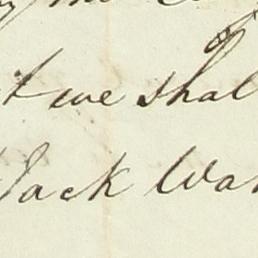 t we shal
Jack Wa